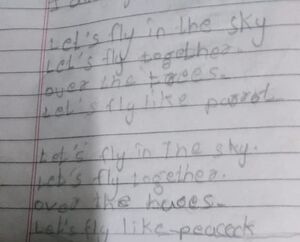 Let's fly in the sky
Let's fly together.
over the
Let's fly like parrot
Let's fly in The sky.
Let's fly together.
over the
Let's fly like peacock